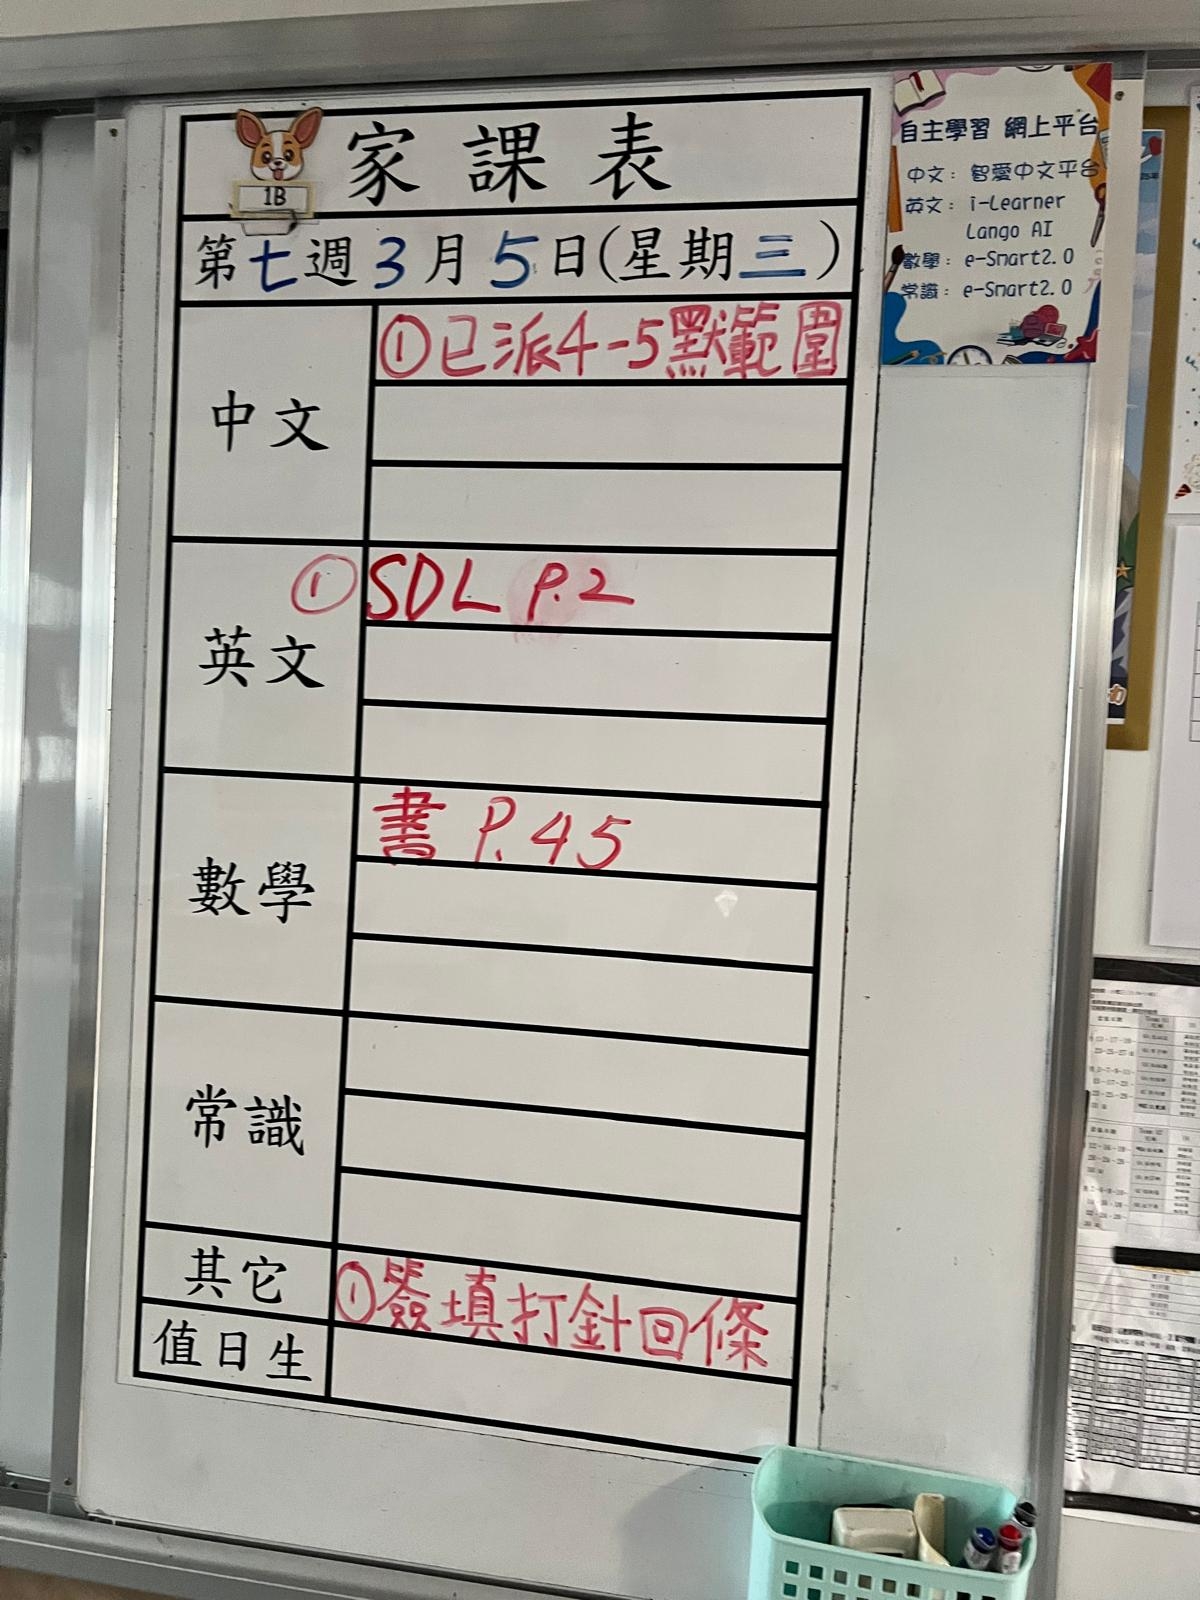 1B
家課表
第七週3月5日(星期三)
中文
①已派4-5默範圍
英文
①SDL P.2
數學
書 P.45
常識
其它
①簽填打針回條
值日生
自主學習 網上平台
中文：智愛中文平台
英文：i-Learner
Lango AI
數學：e-Smart2.0
常識：e-Smart2.0